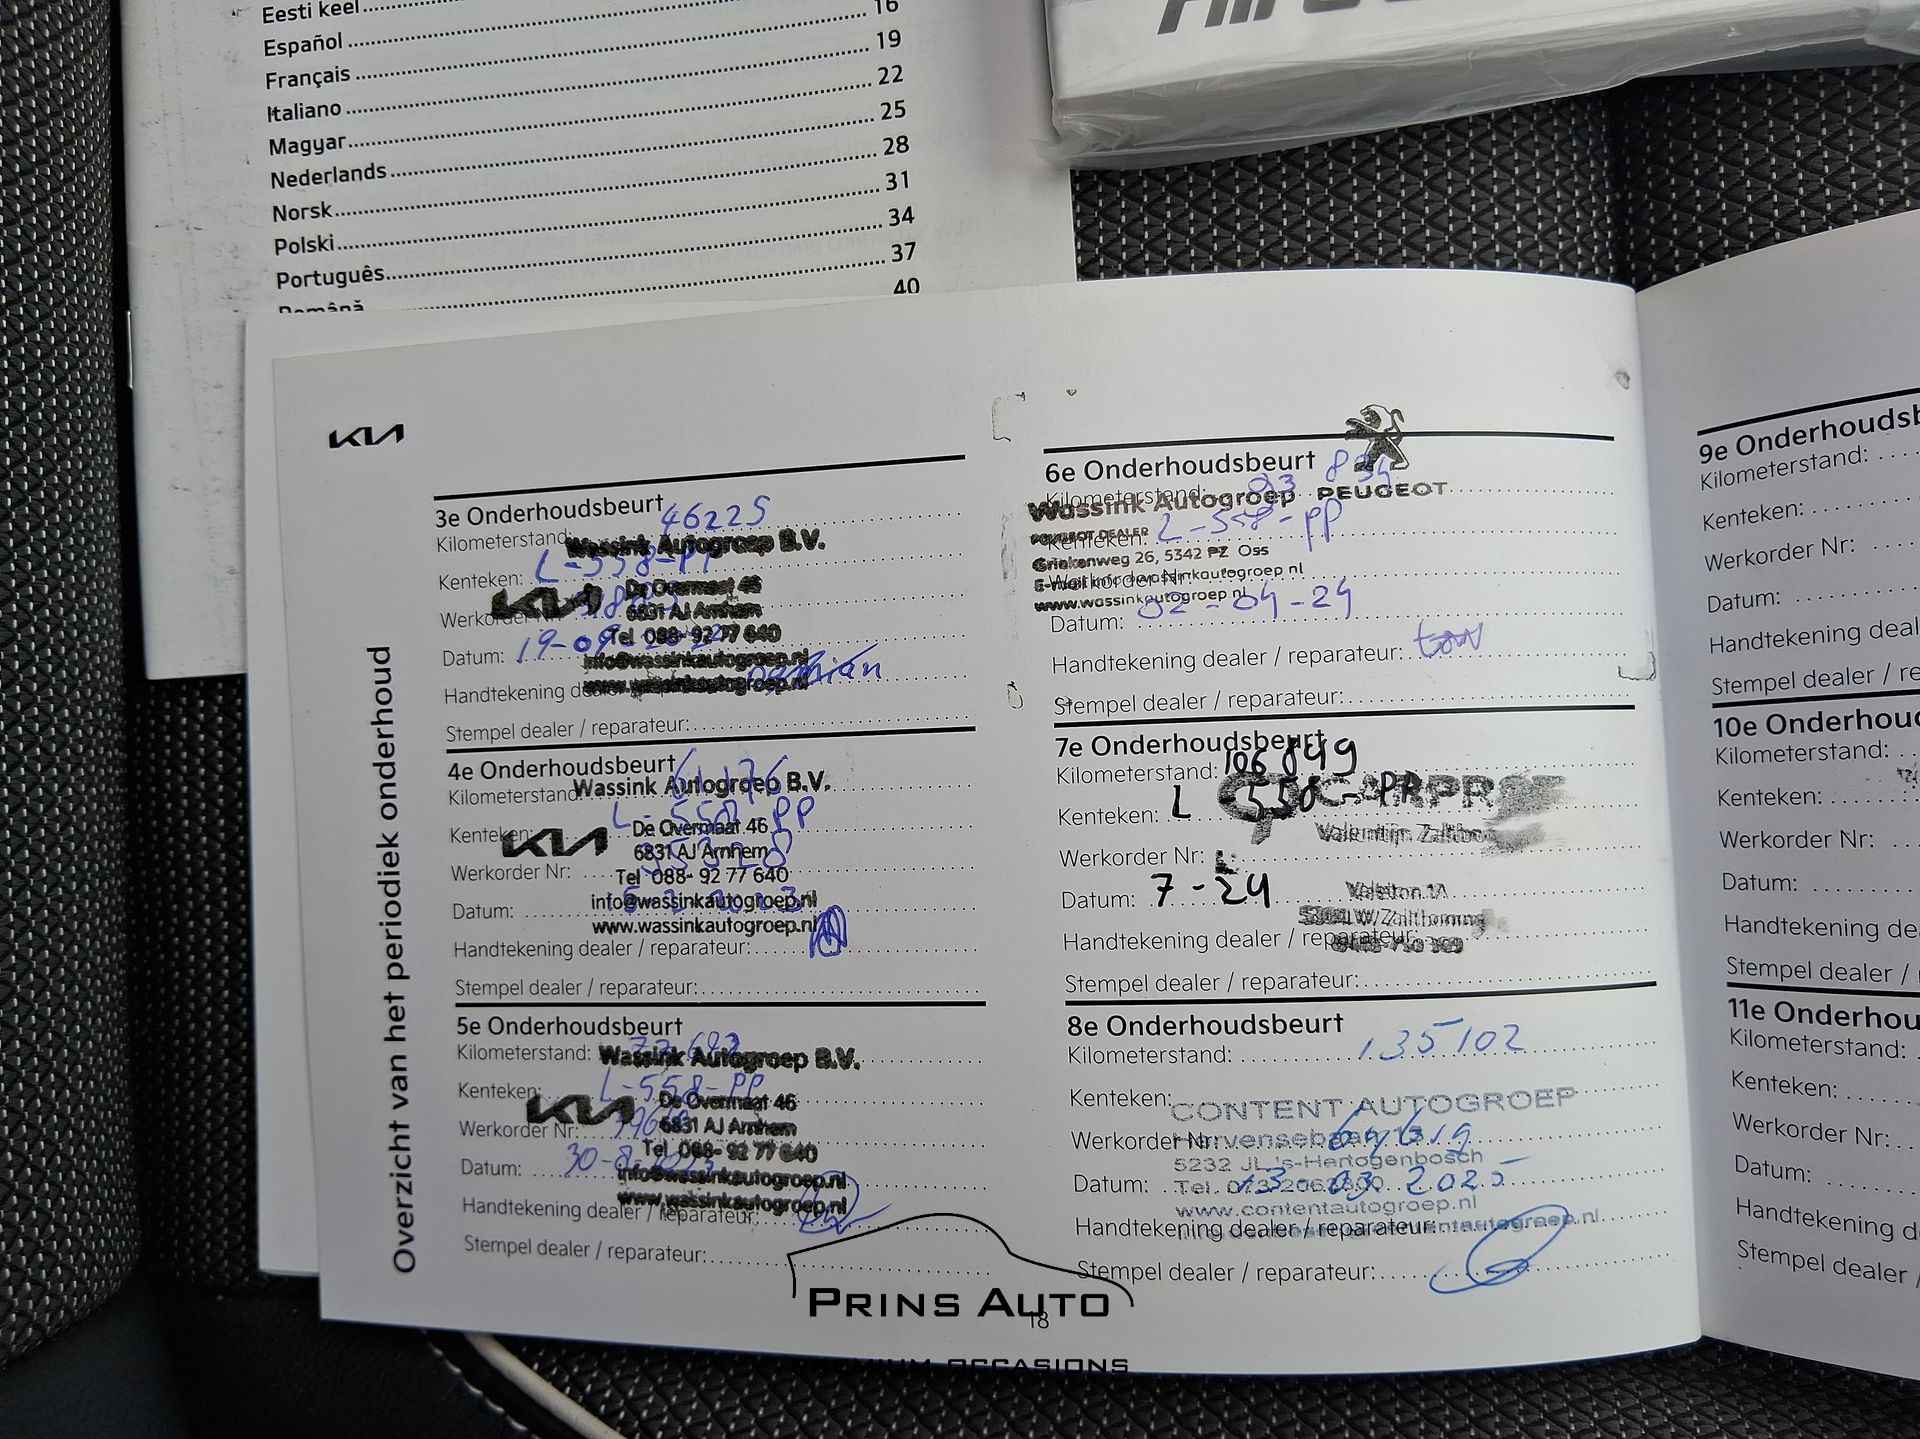 Eesti keel
Español 16
Français 19
Italiano 22
Magyar 25
Nederlands 28
Norsk 31
Polski 34
Português 37
Română 40
KIA
Overzicht van het periodiek onderhoud
3e Onderhoudsbeurt
Kilometerstand: 46225
Wassink Autogroep B.V.
Kenteken: L-558-PP
De Overmaat 46
KIA
6831 AJ Arnhem
Werkorder Nr:
Tel 088- 92 77 640
Datum: 19-09
info@wassinkautogroep.nl
www.wassinkautogroep.nl
Handtekening dealer
Stempel dealer / reparateur:
4e Onderhoudsbeurt
Kilometerstand:
Wassink Autogroep B.V.
Kenteken: L-558-PP
De Overmaat 46
KIA
6831 AJ Arnhem
Werkorder Nr:
Tel 088- 92 77 640
Datum:
info@wassinkautogroep.nl
www.wassinkautogroep.nl
Handtekening dealer / reparateur:
Stempel dealer / reparateur:
5e Onderhoudsbeurt
Kilometerstand:
Wassink Autogroep B.V.
Kenteken: L-558-PP
De Overmaat 46
KIA
6831 AJ Arnhem
Werkorder Nr:
Tel 088- 92 77 640
Datum: 30-8-2023
info@wassinkautogroep.nl
www.wassinkautogroep.nl
Handtekening dealer / reparateur:
Stempel dealer / reparateur:
6e Onderhoudsbeurt
Kilometerstand: 93 834
Wassink Autogroep PEUGEOT
PEUGEOT DEALER
Kenteken: L-558-PP
Griekenweg 26, 5342 PZ Oss
Werkorder Nr:
E-mail info@wassinkautogroep.nl
www.wassinkautogroep.nl
Datum: 02-04-24
Handtekening dealer / reparateur:
Stempel dealer / reparateur:
7e Onderhoudsbeurt
Kilometerstand: 106849
CARPROF
Kenteken: L 558-PP
Valentijn
Werkorder Nr:
Datum: 7-24
Handtekening dealer / reparateur:
Stempel dealer / reparateur:
8e Onderhoudsbeurt
Kilometerstand: 135102
Kenteken:
CONTENT AUTOGROEP
Werkorder Nr:
Hervensebaan 13
5232 JL 's-Hertogenbosch
Datum: 13-03-2025
www.contentautogroep.nl
Handtekening dealer / reparateur:
Stempel dealer / reparateur:
18
9e Onderhoudsb
Kilometerstand:
Kenteken:
Werkorder Nr:
Datum:
Handtekening deal
Stempel dealer / re
10e Onderhoud
Kilometerstand:
Kenteken:
Werkorder Nr:
Datum:
Handtekening de
Stempel dealer /
11e Onderhou
Kilometerstand:
Kenteken:
Werkorder Nr:
Datum:
Handtekening d
Stempel dealer /
PRINS AUTO
MIUM OCCASIONS